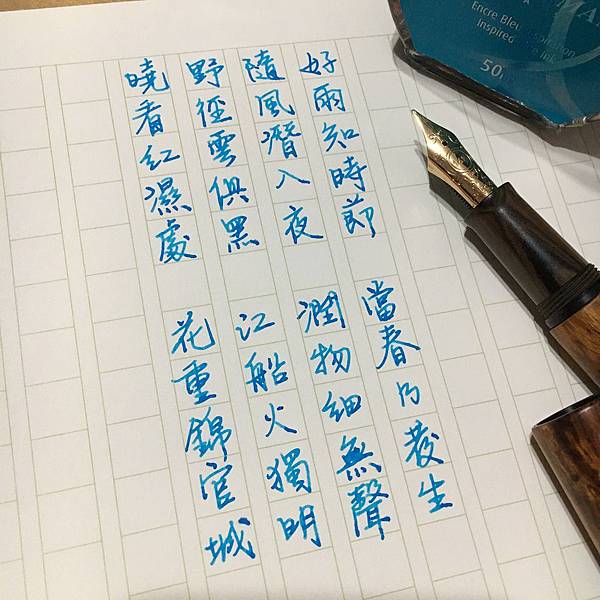 好雨知時節
當春乃發生
隨風潛入夜
潤物細無聲
野徑雲俱黑
江船火獨明
曉看紅濕處
花重錦官城
Encre Bleu
Inspired
50